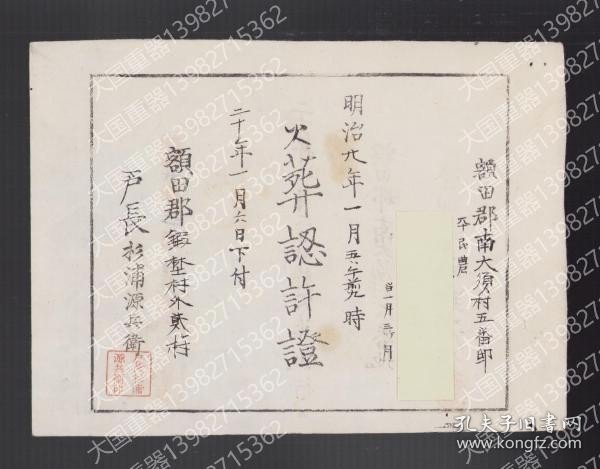 額田郡南大須村五番邸
平民農
当一月三月
明治廿九年一月五日午前九時
火葬認許證
二十年一月六日下付
額田郡鍛埜村外弐村
戸長杉浦源兵衛
大国重器13982715362
孔夫子旧书网
www.kongfz.com